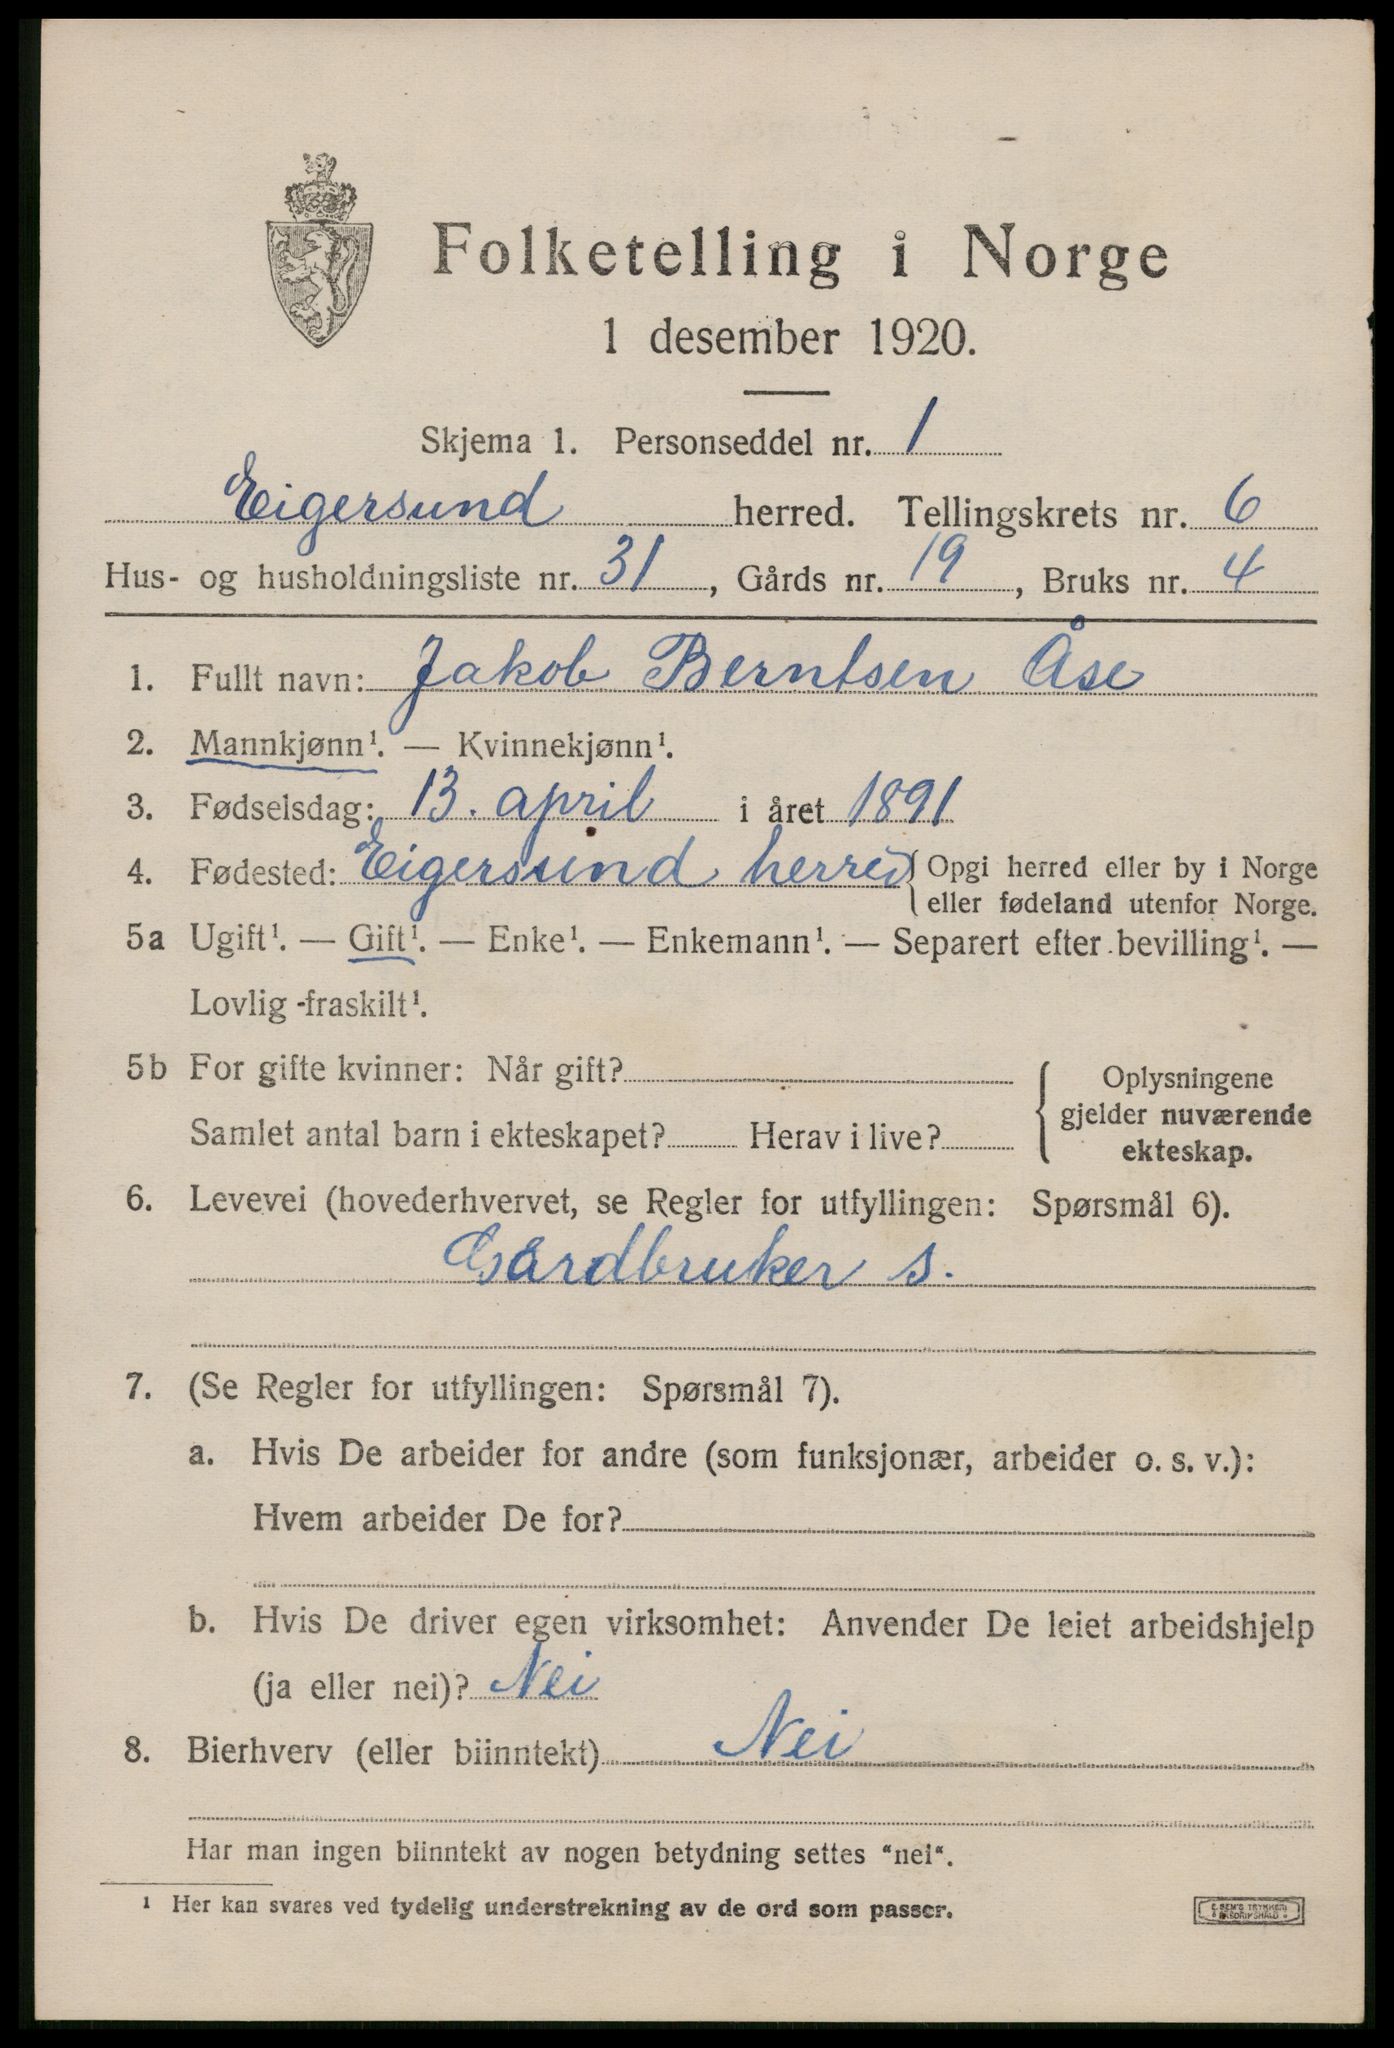 Folketelling i Norge
1 desember 1920.
Skjema 1. Personseddel nr. 1
Eigersund herred. Tellingskrets nr. 6
Hus- og husholdningsliste nr. 31, Gårds nr. 19, Bruks nr. 4
1. Fullt navn: Jakob Berntsen Åse
2. Mannkjønn¹. — Kvinnekjønn¹.
3. Fødselsdag: 13. april i året 1891
4. Fødested: Eigersund herred { Opgi herred eller by i Norge
eller fødeland utenfor Norge.
5a Ugift¹. — Gift¹. — Enke¹. — Enkemann¹. — Separert efter bevilling¹. —
Lovlig fraskilt¹.
5b For gifte kvinner: Når gift?
Samlet antal barn i ekteskapet? Herav i live?
Oplysningene
gjelder nuværende
ekteskap.
6. Levevei (hovederhvervet, se Regler for utfyllingen: Spørsmål 6).
Gårdbruker s.
7. (Se Regler for utfyllingen: Spørsmål 7).
a. Hvis De arbeider for andre (som funksjonær, arbeider o. s. v.):
Hvem arbeider De for?
b. Hvis De driver egen virksomhet: Anvender De leiet arbeidshjelp
(ja eller nei)? Nei
8. Bierhverv (eller biinntekt) Nei
Har man ingen biinntekt av nogen betydning settes "nei".
¹ Her kan svares ved tydelig understrekning av de ord som passer.
E. SEM'S TRYKKERI
FREDRIKSHALD